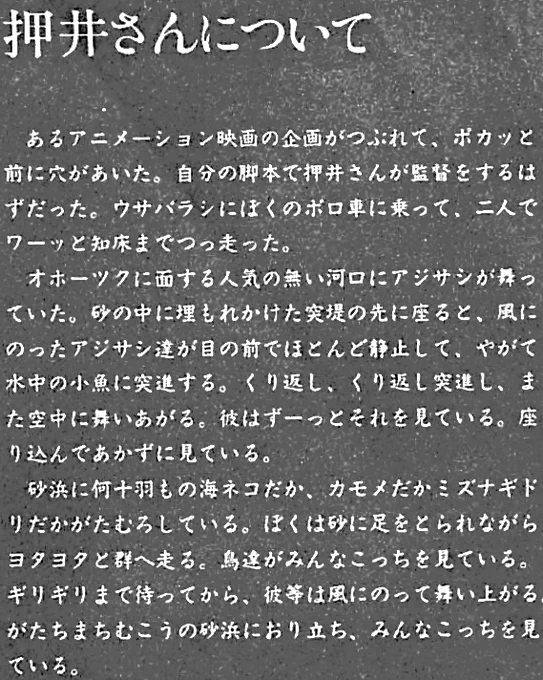 押井さんについて
あるアニメーション映画の企画がつぶれて、ポカッと
前に穴があいた。自分の脚本で押井さんが監督をするは
ずだった。ウサバラシにぼくのボロ車に乗って、二人で
ワーッと知床までつっ走った。
オホーツクに面する人気の無い河口にアジサシが舞っ
ていた。砂の中に埋もれかけた突堤の先に座ると、風に
のったアジサシ達が目の前でほとんど静止して、やがて
水中の小魚に突進する。くり返し、くり返し突進し、ま
た空中に舞いあがる。彼はずーっとそれを見ている。座
り込んであかずに見ている。
砂浜に何十羽もの海ネコだか、カモメだかミズナギド
リだかがたむろしている。ぼくは砂に足をとられながら
ヨタヨタと群へ走る。鳥達がみんなこっちを見ている。
ギリギリまで待ってから、彼等は風にのって舞い上がる。
がたちまちむこうの砂浜におり立ち、みんなこっちを見
ている。